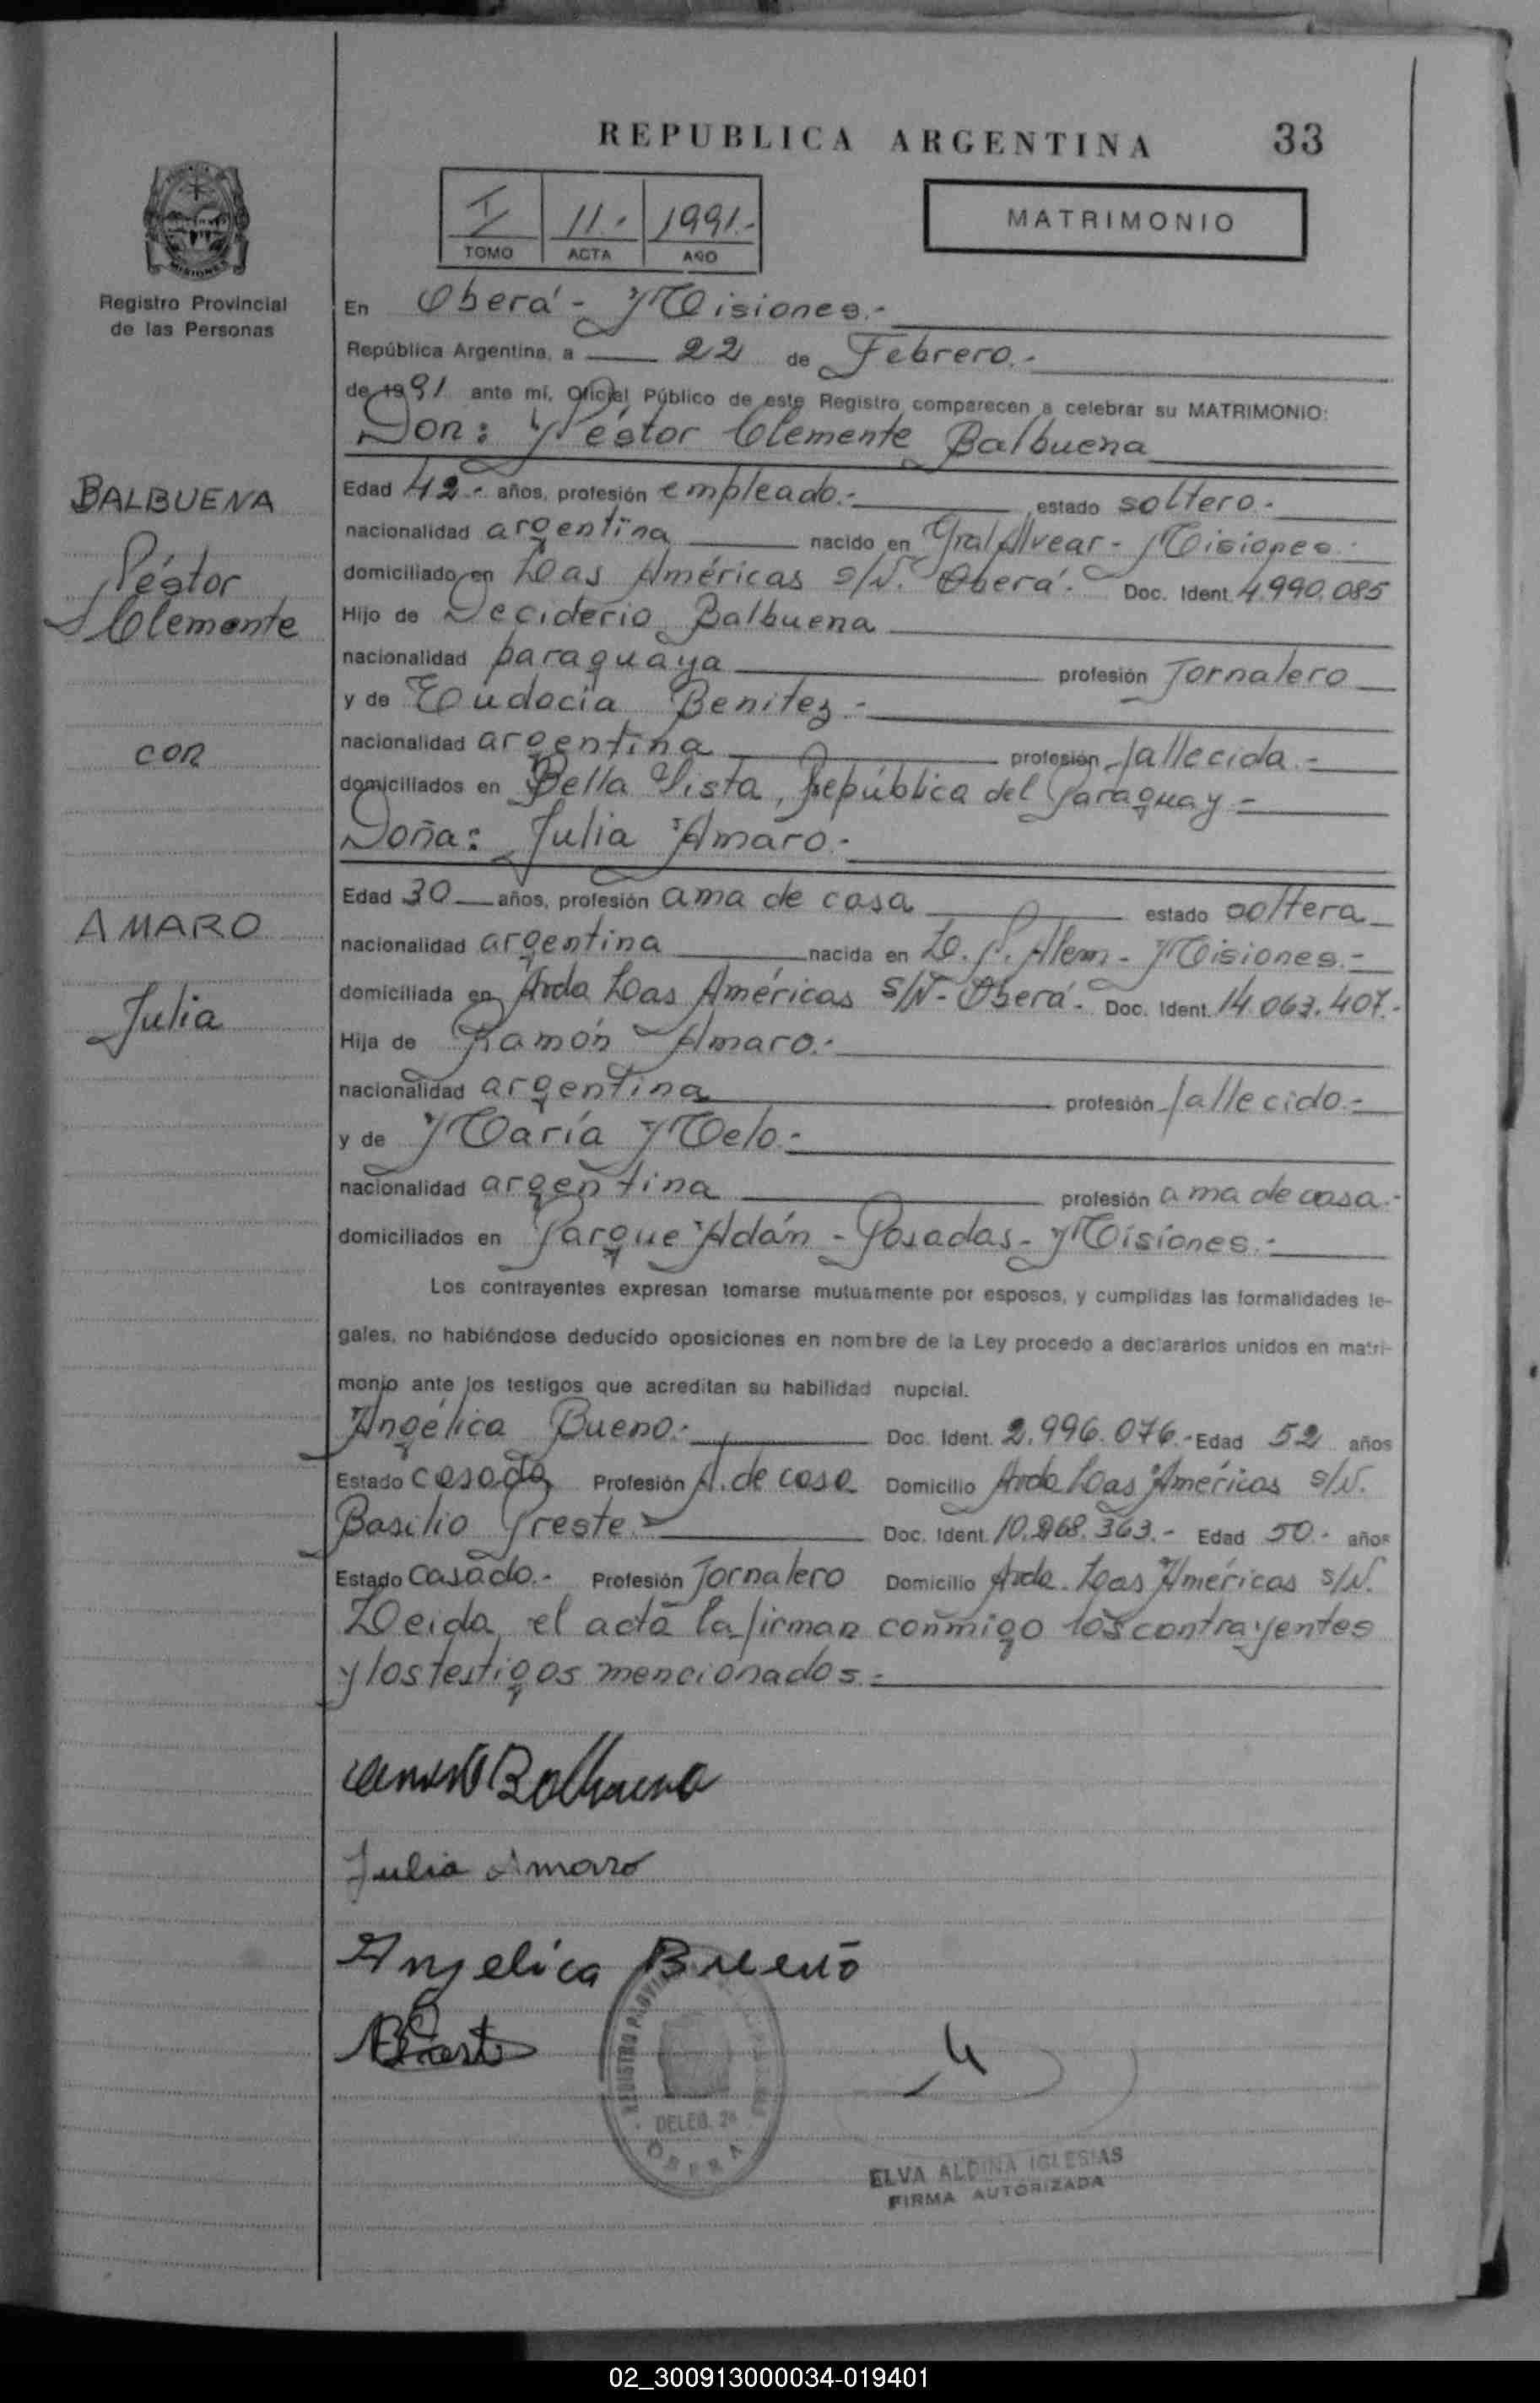 REPUBLICA ARGENTINA 33
I 11.- 1991.-
TOMO ACTA AÑO
MATRIMONIO
MISIONES
Registro Provincial
de las Personas
En Oberá - Misiones.-
República Argentina, a 22 de Febrero.-
de 1991 ante mí, Oficial Público de este Registro comparecen a celebrar su MATRIMONIO:
Don: Néstor Clemente Balbuena
BALBUENA
Néstor
Clemente
con
AMARO
Julia
Edad 42.- años, profesión empleado.- estado soltero.-
nacionalidad argentina nacido en Gral Alvear - Misiones.
domiciliado en Las Américas s/N. Oberá. Doc. Ident. 4.990.085
Hijo de Deciderio Balbuena
nacionalidad paraguaya profesión Jornalero
y de Eudocia Benitez.-
nacionalidad argentina profesión fallecida.-
domiciliados en Bella Vista, República del Paraguay.-
Doña: Julia Amaro.-
Edad 30 años, profesión ama de casa estado soltera
nacionalidad argentina nacida en L. N. Alem - Misiones.-
domiciliada en Avda Las Américas S/N - Oberá. Doc. Ident. 14.063.407.-
Hija de Ramón Amaro.-
nacionalidad argentina profesión fallecido.-
y de María Melo.-
nacionalidad argentina profesión ama de casa.-
domiciliados en Parque Adán - Posadas - Misiones.-
Los contrayentes expresan tomarse mutuamente por esposos, y cumplidas las formalidades le-
gales, no habiéndose deducido oposiciones en nombre de la Ley procedo a declararlos unidos en matri-
monio ante los testigos que acreditan su habilidad nupcial.
Angélica Bueno.- Doc. Ident. 2.996.076.- Edad 52 años
Estado casada Profesión A. de casa Domicilio Avda Las Américas s/N.
Basilio Preste Doc. Ident. 10.268.363.- Edad 50.- años
Estado casado.- Profesión Jornalero Domicilio Avda. Las Américas s/N.
Leida el acta la firman conmigo los contrayentes
y los testigos mencionados.-
Balbuena
Julia Amaro
Angelica Bueno
REGISTRO
DELEG. 2ª
OBERA
ELVA ALDINA IGLESIAS
FIRMA AUTORIZADA
02_300913000034-019401